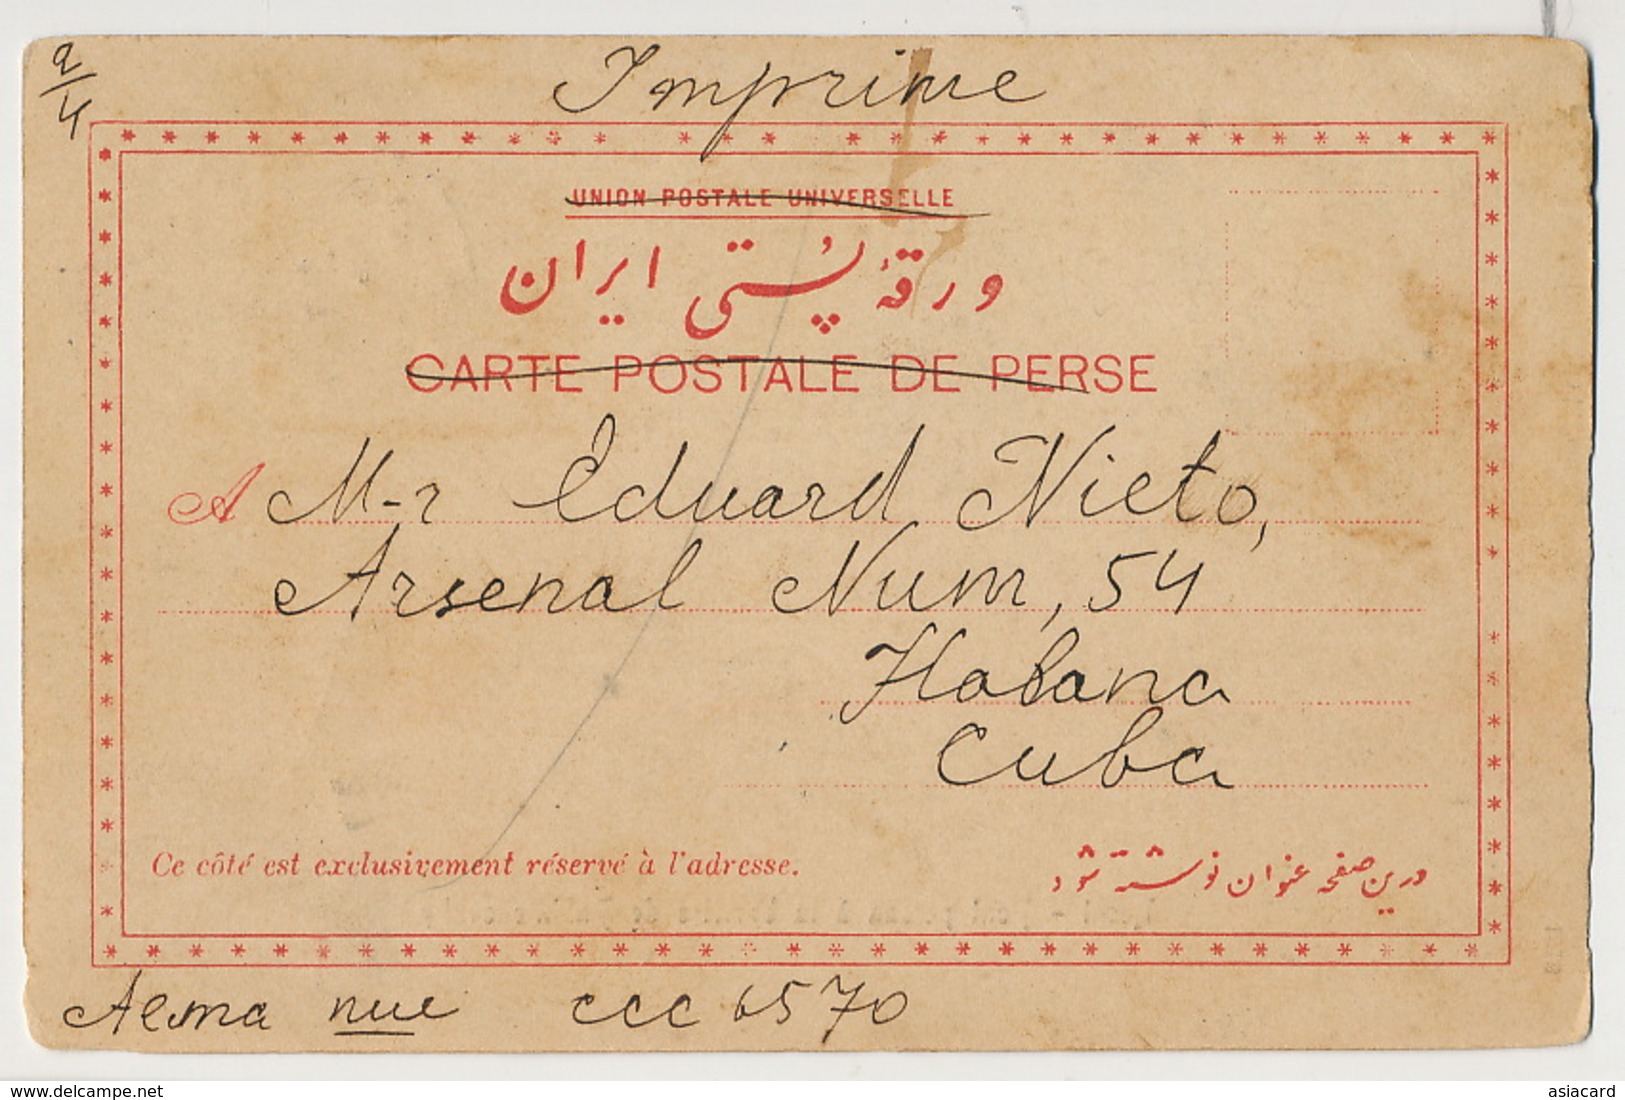 a/4
Imprime
UNION POSTALE UNIVERSELLE
ورقهٔ پُستی ایران
CARTE POSTALE DE PERSE
A M-r Eduard Nieto,
Arsenal Num, 54
Habana
Cuba
Ce côté est exclusivement réservé à l'adresse.
درین صفحه عنوان نوشته شود
nue ccc 6570
delcampe.net
asiacard